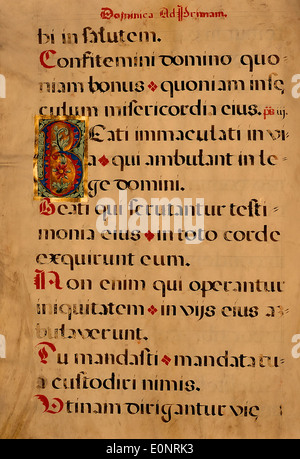 Dominica Ad Primam.
hi in salutem.
Confitemini domino quo
niam bonus quoniam in sę
culum misericordia eius. ps. iij.
Beati immaculati in vi
a qui ambulant in le
ge domini.
Beati qui scrutantur testi
monia eius in toto corde
exquirunt eum.
Non enim qui operantur
iniquitatem in vijs eius am
bulaverunt.
Tu mandasti mandata tu
a custodiri nimis.
Utinam dirigantur vię
alamy stock photo
E0NRK3
www.alamy.com